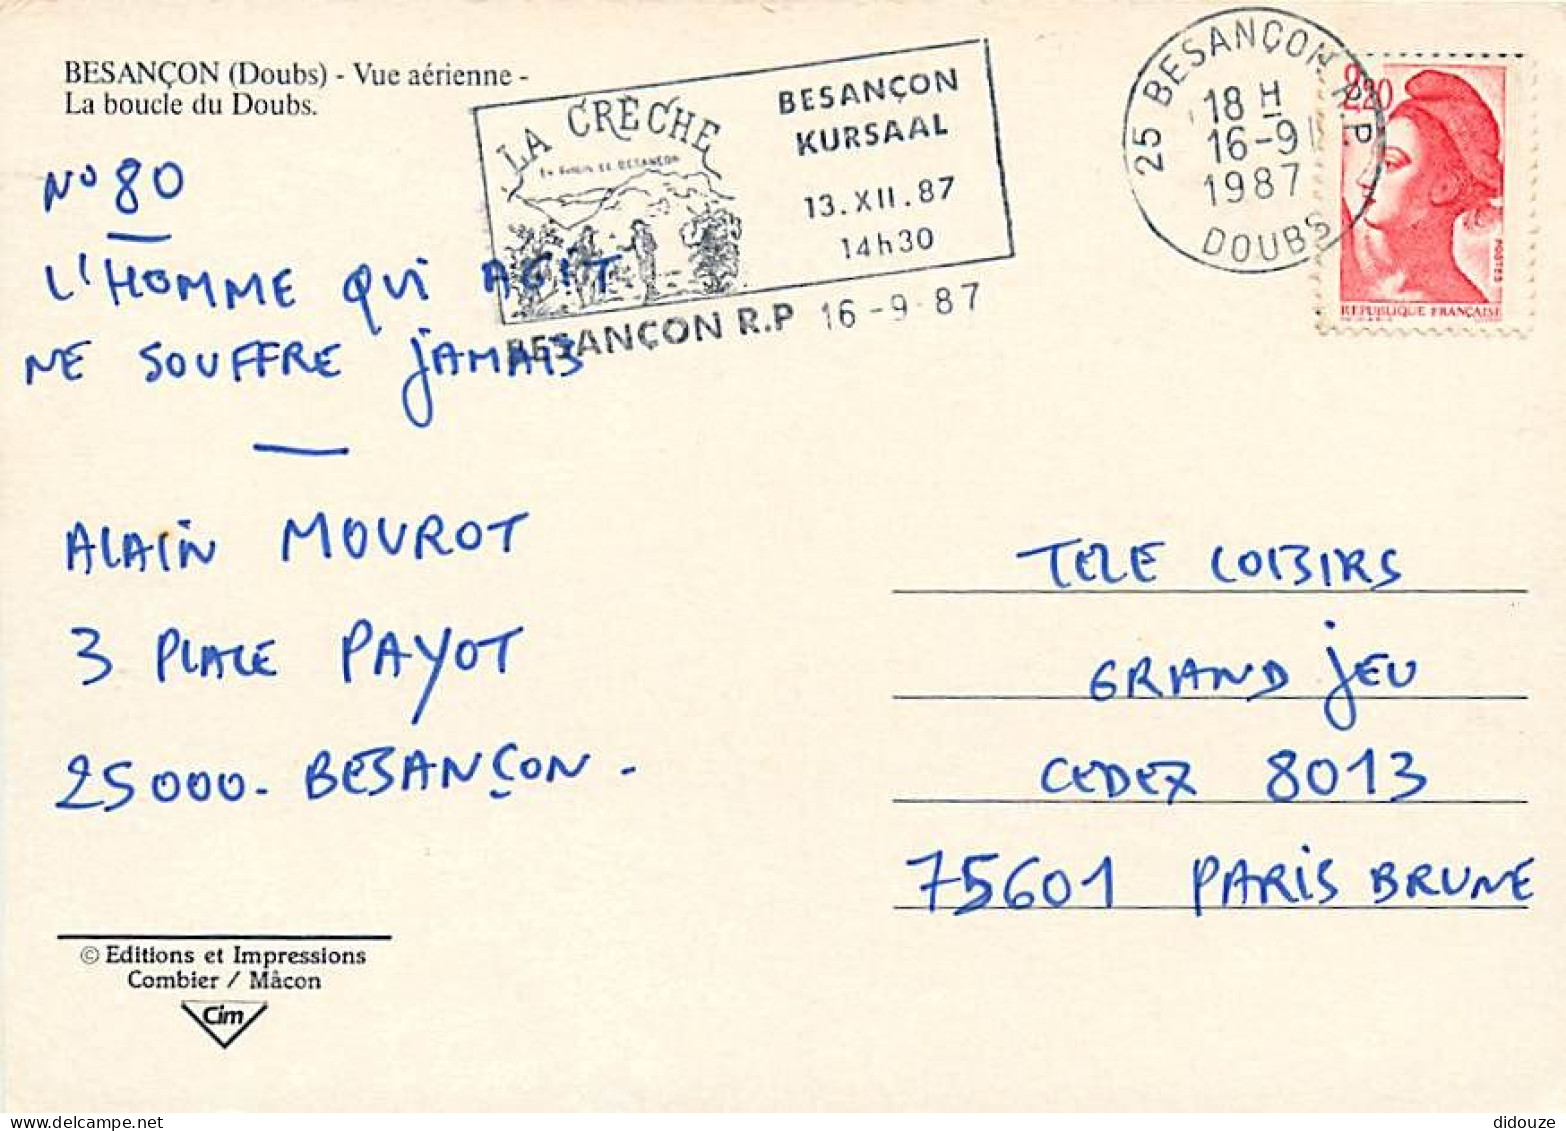 BESANÇON (Doubs) - Vue aérienne -
La boucle du Doubs.
LA CRÈCHE
BESANÇON
KURSAAL
13.XII.87
14h30
BESANÇON R.P 16-9-87
25 BESANÇON R.P.
18 H
16-9
1987
DOUBS
2,20
POSTES
REPUBLIQUE FRANÇAISE
N° 80
L'HOMME QUI AGIT
NE SOUFFRE JAMAIS
ALAIN MOUROT
3 PLACE PAYOT
25000. BESANÇON.
TELE LOISIRS
GRAND JEU
CEDEX 8013
75601 PARIS BRUNE
© Editions et Impressions
Combier / Mâcon
Cim
didouze